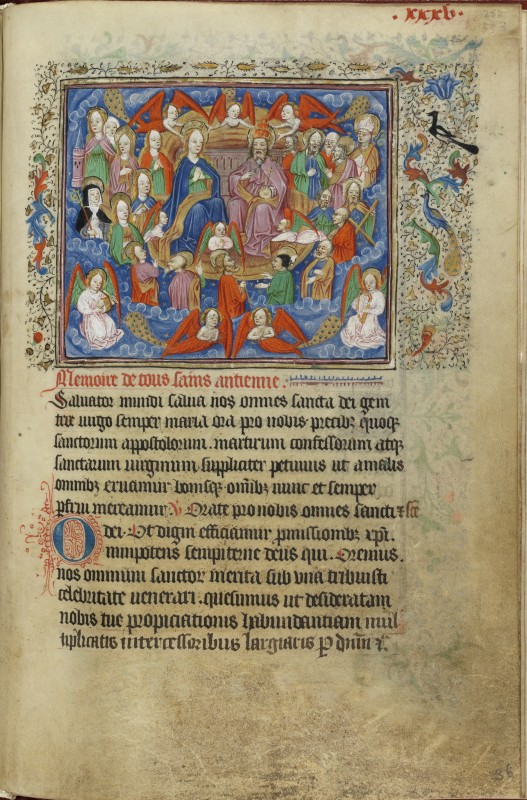 .xxxv.
Memoire de tous sains antienne.
Saluator mundi salua nos omnes sancta dei geni
trix uirgo semper maria ora pro nobis precibꝫ quoqꝫ
sanctorum appostolorum. martirum confessorum atqꝫ
sanctarum uirginum suppliciter petimus ut a malis
omnibꝫ eruamur bonisqꝫ omibꝫ nunc et semper
pfrui mereamur. Orate pro nobis omnes sancti et scē
dei. Ut digni efficiamur pmissionibꝫ xpi.
Omnipotens sempiterne deus qui. Oremus.
nos omnium sanctoꝝ merita sub vna tribuisti
celebritate uenerari. quesumus ut desideratam
nobis tue propiciationis habundantiam mul
tiplicatis intercessoribus largiaris p dnm &c.
36